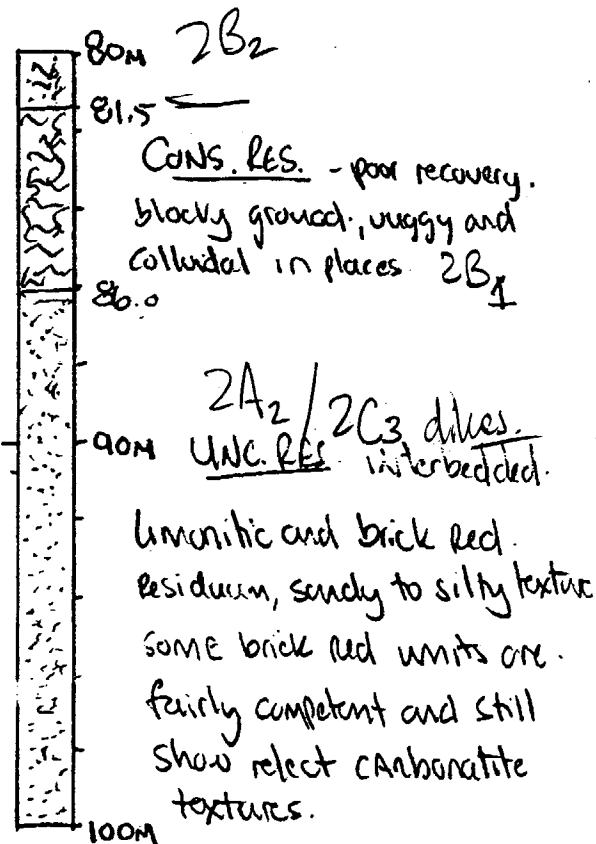 80M 2B2
81.5
CONS. RES. - poor recovery.
blocky ground, vuggy and
colluidal in places 2B1
86.0
2A2 / 2C3 dikes.
90M UNC. RES. interbedded.
limonitic and brick Red.
Residuum, sandy to silty texture
some brick red units are.
fairly competent and still
show relect CArbonatite
textures.
100M